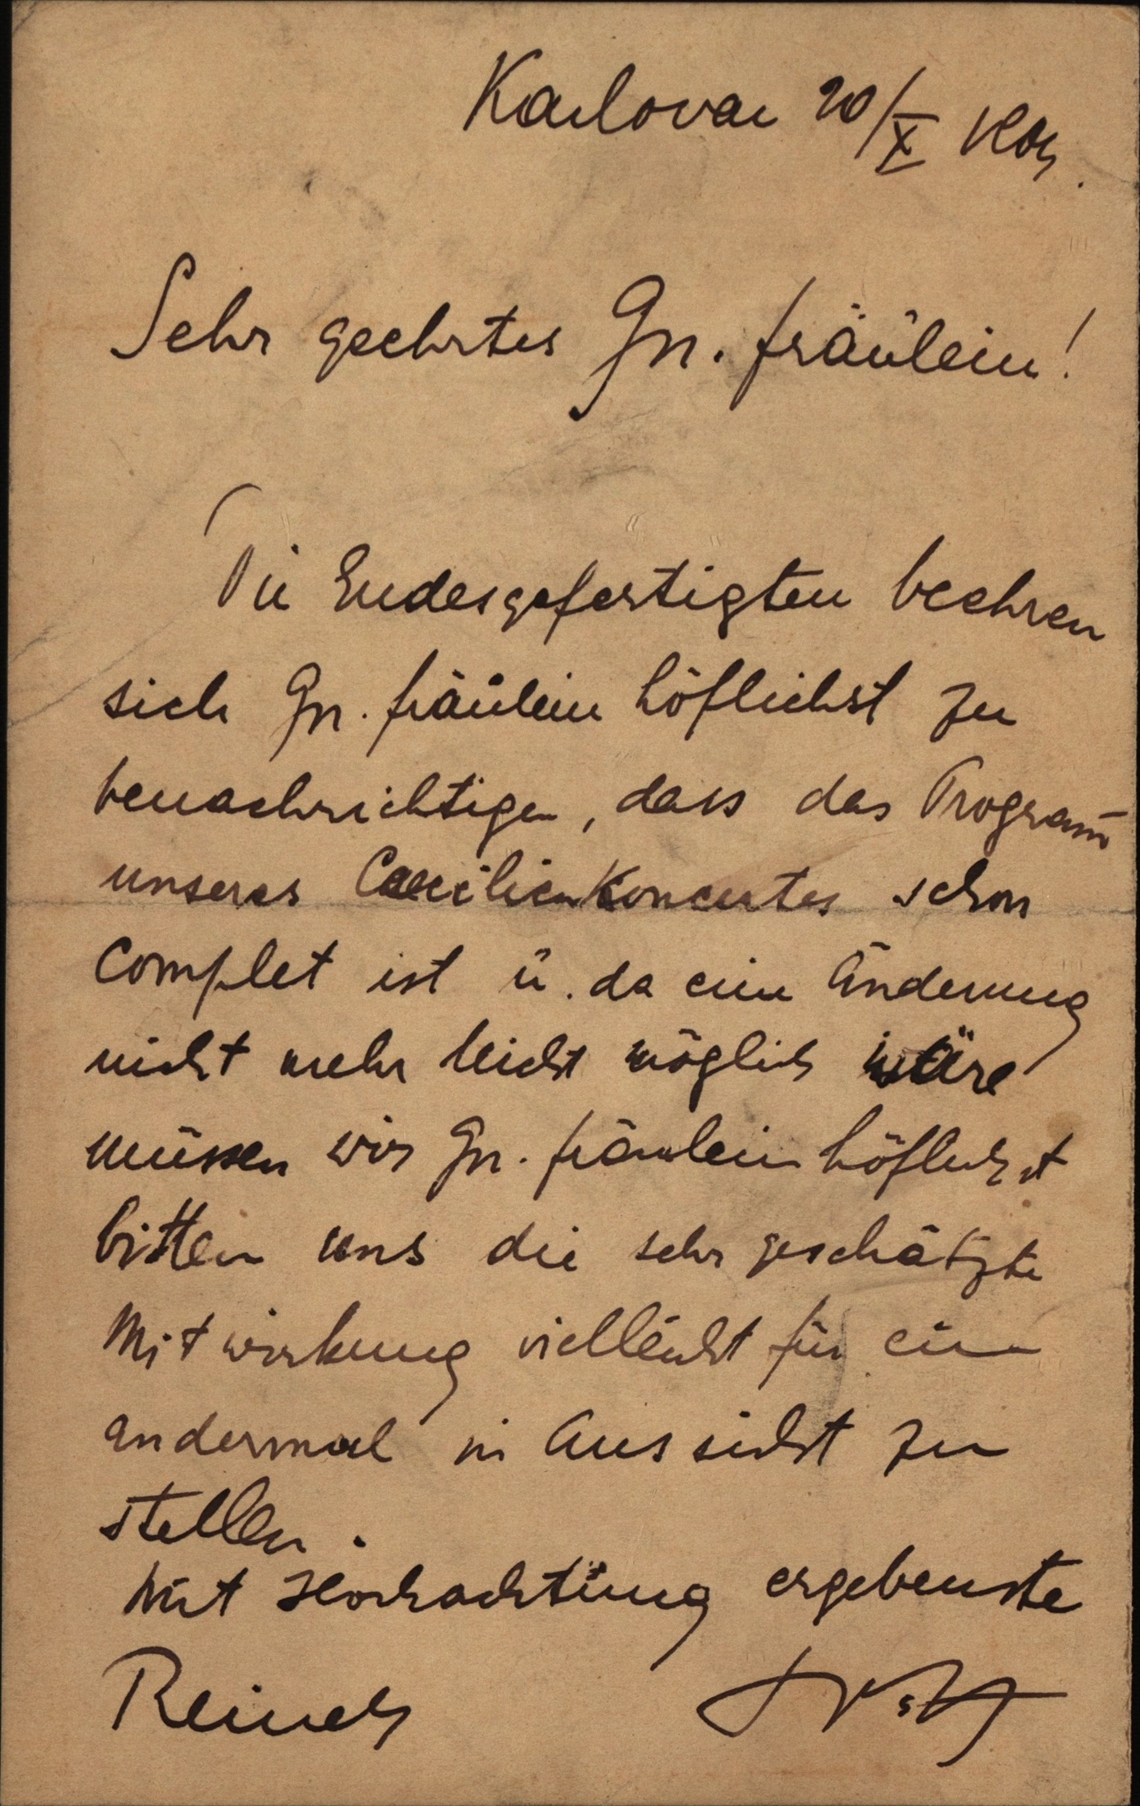 Karlovac 20/X
Sehr geehrtes Gn. Fräulein!
Die Endesgefertigten beehren
sich Gn. Fräulein höflichst zu
benachrichtigen, dass das Programm̄
unseres Caecilienkoncertes schon
complet ist ū. da eine Änderung
nicht mehr leicht möglich wäre
müssen wir Gn. Fräulein höflichst
bitten uns die sehr geschätzte
Mitwirkung vielleicht für ein
andermal in Aussicht zu
stellen.
Mit Hochachtung ergebenste